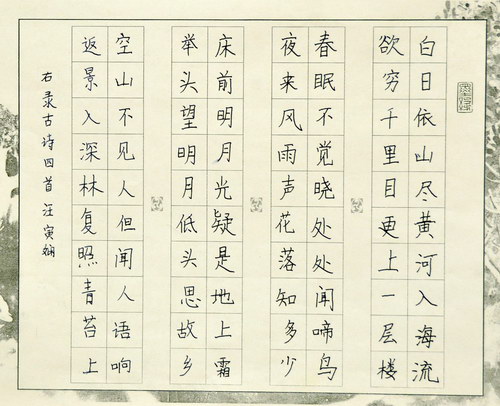 白日依山尽黄河入海流
欲穷千里目更上一层楼
春眠不觉晓处处闻啼鸟
夜来风雨声花落知多少
床前明月光疑是地上霜
举头望明月低头思故乡
空山不见人但闻人语响
返景入深林复照青苔上
右录古诗四首 汪寅